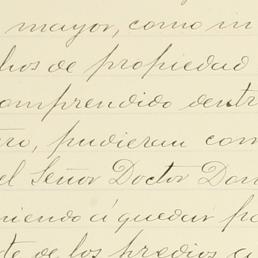 mayor, como in
hos de propiedad
omprendido dentr
ro, pudieran com
el Señor Doctor Don
niendo á quedar po
te de los predios